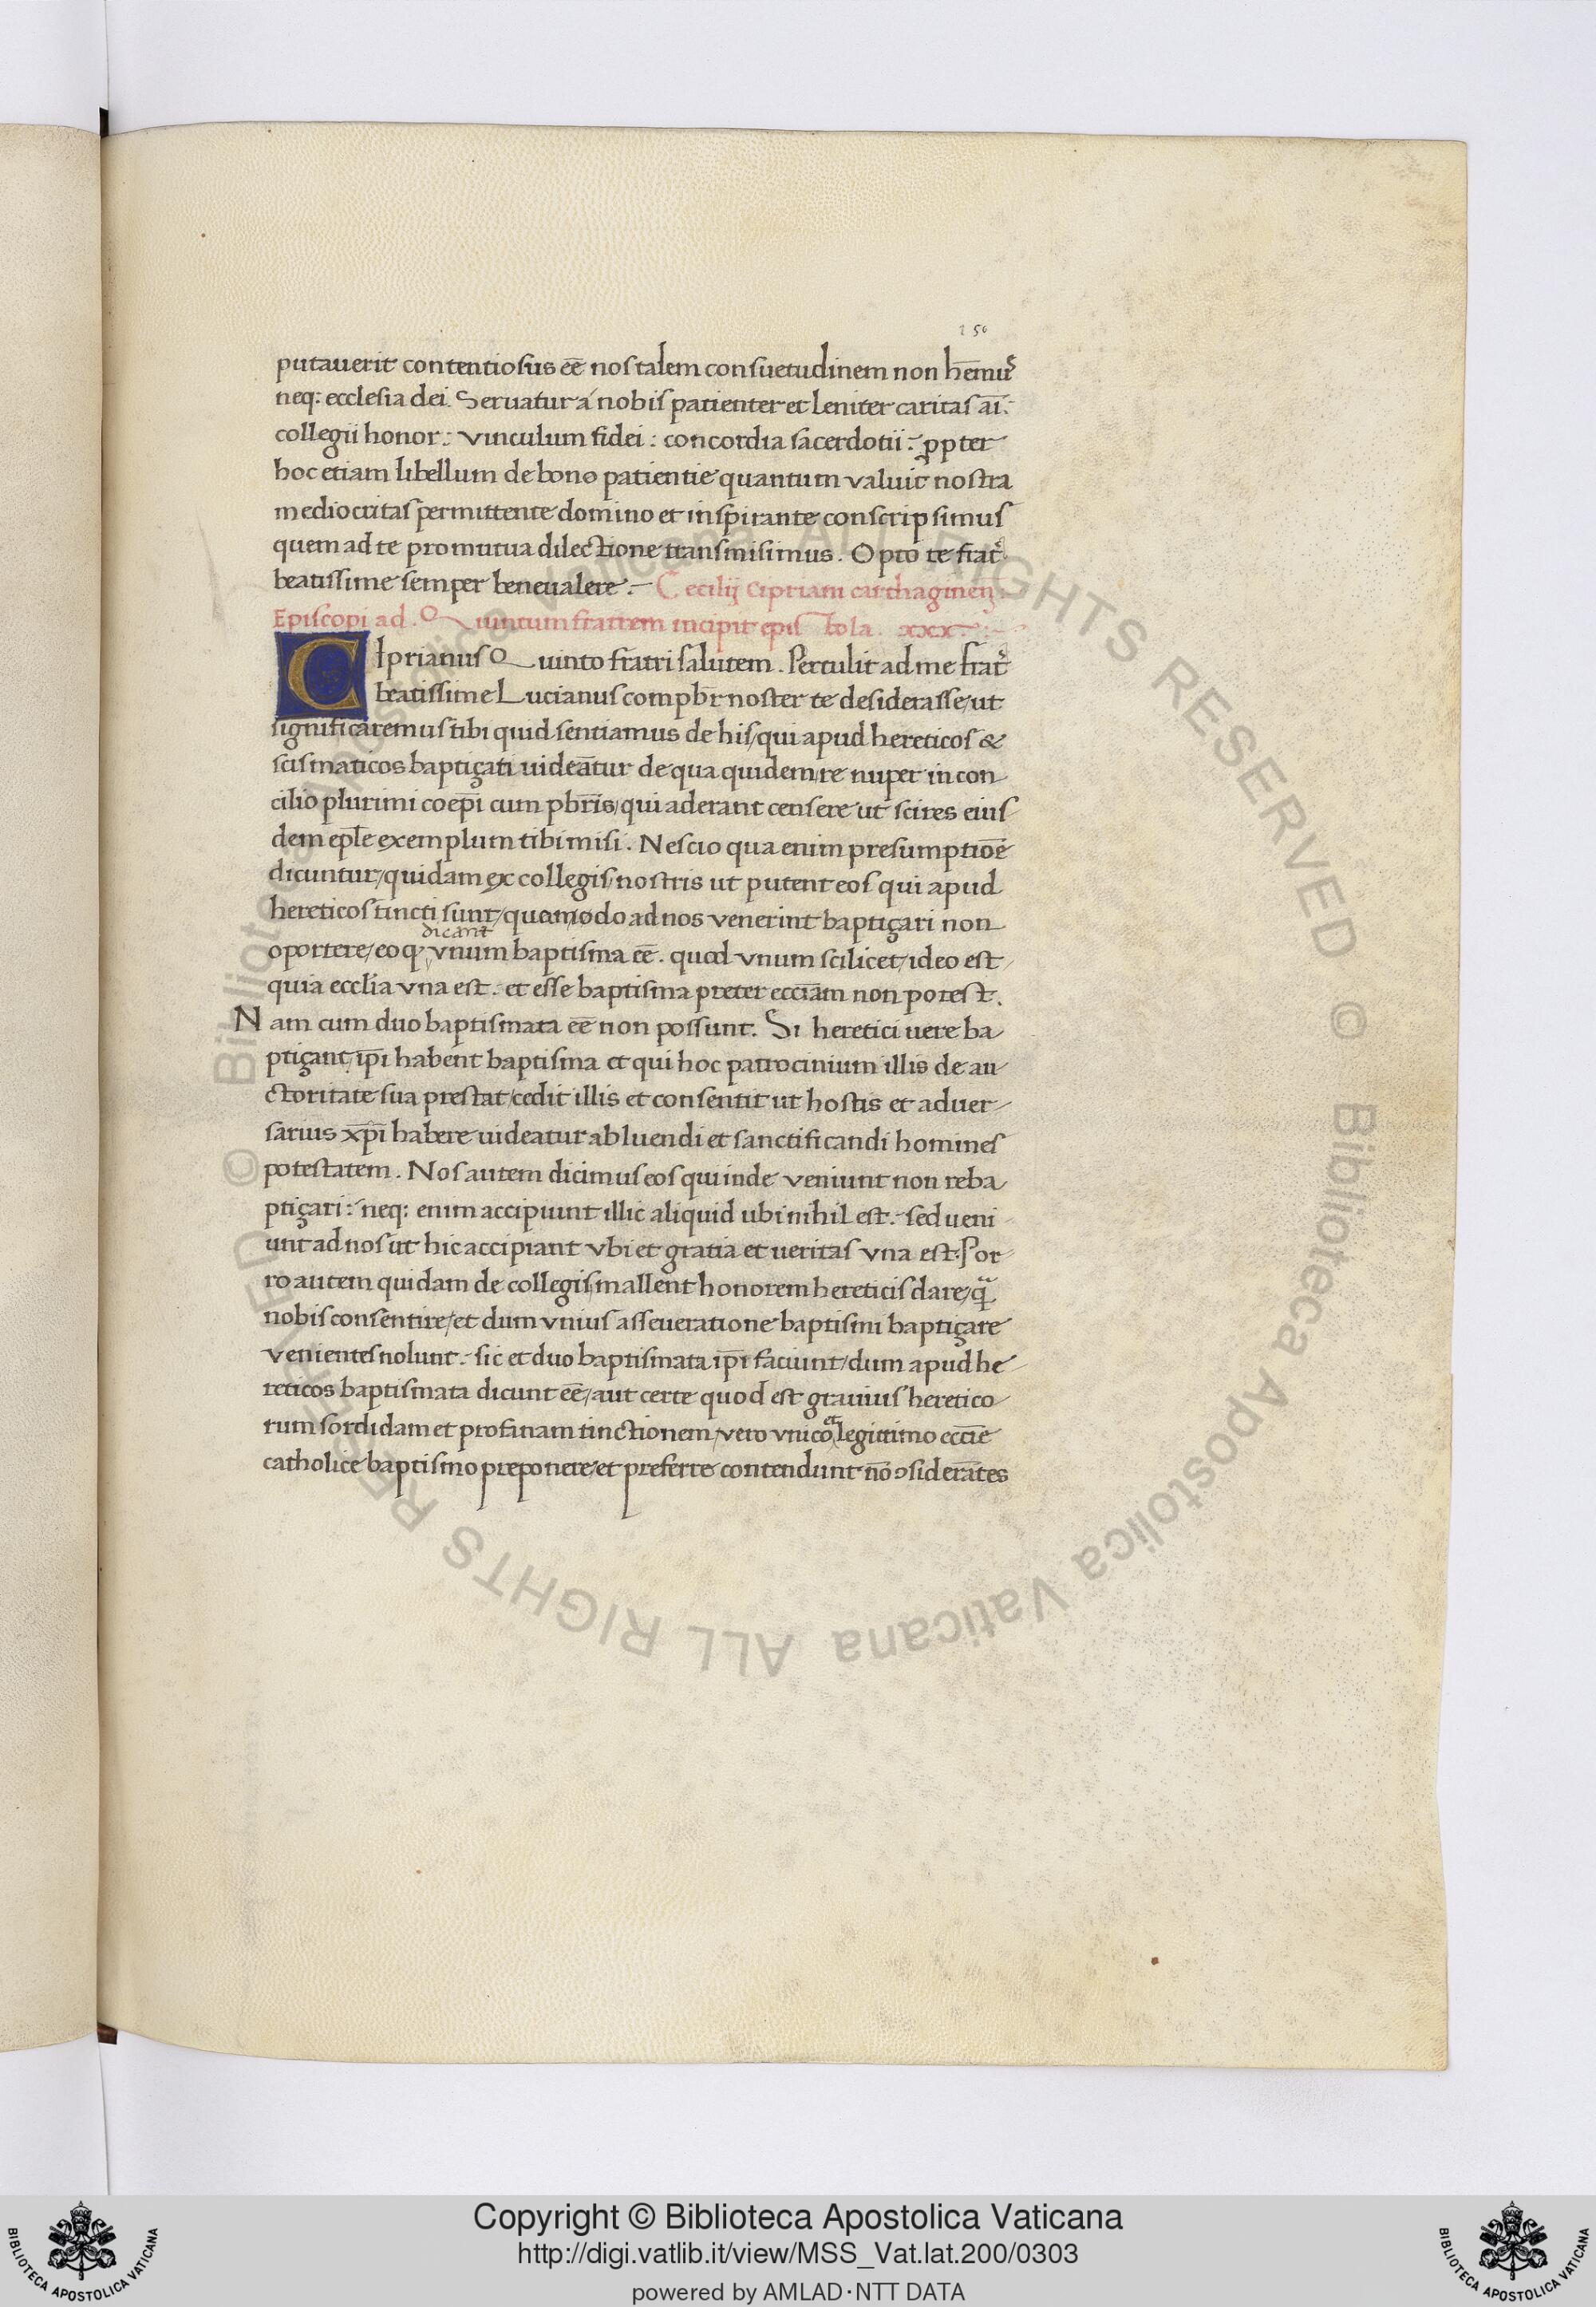 150
putauerit contentiosus eē nos talem consuetudinem non hēmuˢ
neq: ecclesia dei. Seruatur á nobis patienter et leniter caritas aī:
collegii honor: vinculum fidei: concordia sacerdotii: ꝓpter
hoc etiam libellum de bono patientie quantum valuit nostra
mediocritas permittente domino et inspirante conscripsimus
quem ad te pro mutua dilectione transmisimus. Opto te frat̉
beatissime semper bene ualere. Cecilij Cipriani carthaginen̄
Episcopi ad Quintum fratrem incipit epistola. xxx.
CIprianus Quinto fratri salutem. Pertulit ad me frat̉
beatissime Lucianus compbr̄ noster te desiderasse/ut
significaremus tibi quid sentiamus de his/qui apud hereticos &
scismaticos baptiçati uideātur de qua quidem re nuper in con
cilio plurimi coepī cum pbr̄is/qui aderant censere ut scires eius
dem epl̄e exemplum tibi misi. Nescio qua enim presumptiōe
dicuntur/quidam ex collegis nostris ut putent eos qui apud
hereticos tincti sunt/quomodo ad nos venerint baptiçari non
dicant
oportere/eo ꝙ vnum baptisma eē. quod vnum scilicet/ideo est
quia eccl̄ia vna est. et esse baptisma preter ecciām non potest.
Nam cum duo baptismata eē non possunt. Si heretici uere ba
ptiçant/ip̄i habent baptisma et qui hoc patrocinium illis de au
ctoritate sua prestat/cedit illis et consentit ut hostis et aduer
sarius xp̄i habere uideatur abluendi et sanctificandi homines
potestatem. Nos autem dicimus eos qui inde veniunt non reba
ptiçari: neq: enim accipiunt illic aliquid ubi nihil est. sed ueni
unt ad nos ut hic accipiant vbi et gratia et ueritas vna est. Por
ro autem quidam de collegis mallent honorem hereticis dare/qᵃ̄
nobis consentire/et dum vnius asseueratione baptismi baptiçare
venientes nolunt. sic et duo baptismata ip̄i faciunt/dum apud he
reticos baptismata dicunt eē/aut certe quod est grauius heretico
rum sordidam et profanam tinctionem/vero vnico et legittimo eccīe
catholice baptismo preponere/et preferre contendunt nō ↄsiderātes
© Biblioteca Apostolica Vaticana ALL RIGHTS RESERVED © Biblioteca Apostolica Vaticana ALL RIGHTS RESERVED
BIBLIOTECA APOSTOLICA VATICANA
Copyright © Biblioteca Apostolica Vaticana
http://digi.vatlib.it/view/MSS_Vat.lat.200/0303
powered by AMLAD·NTT DATA
BIBLIOTECA APOSTOLICA VATICANA